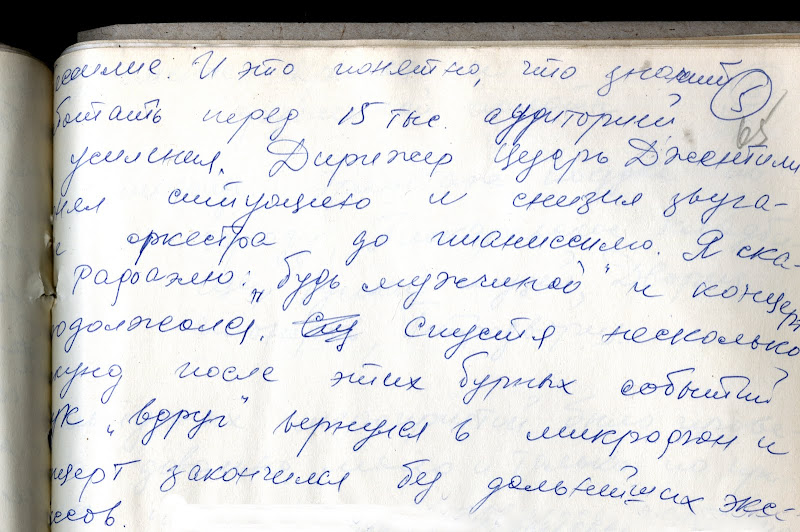 силие. И это понятно, что значит 5
ботать перед 15 тыс. аудиторий 65
усиления. Дирижер Цезарь Джентили
нял ситуацию и снизил звуча-
е оркестра до пианиссимо. Я ска-
Рафаэлю: "будь мужчиной" и концерт
одолжался. Спустя несколько
кунд после этих бурных событий
ук "вдруг" вернулся в микрофон и
нцерт закончился без дальнейших экс-
ссов.